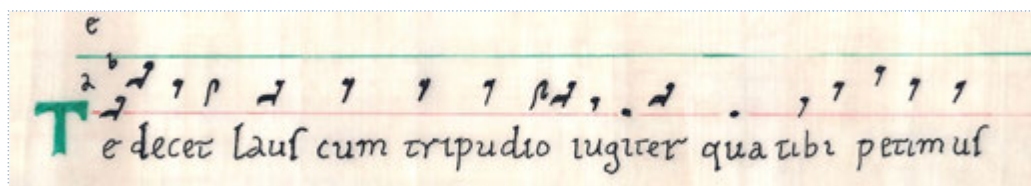 e
a b
Te decet lauſ cum tripudio iugiter qua tibi petimuſ